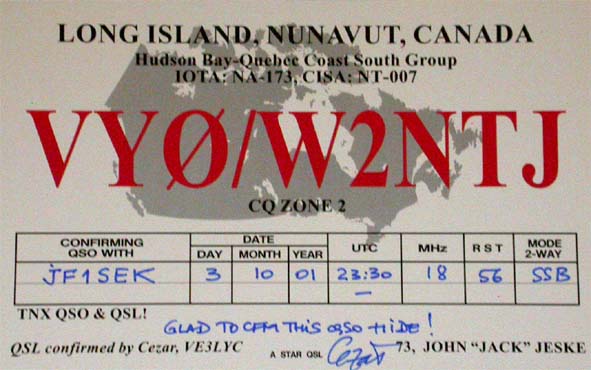 LONG ISLAND, NUNAVUT, CANADA
Hudson Bay-Quebec Coast South Group
IOTA: NA-173, CISA: NT-007
VYØ/W2NTJ
CQ ZONE 2
CONFIRMING QSO WITH DATE DAY MONTH YEAR UTC MHz R S T MODE 2-WAY
JF1SEK 3 10 01 23:30 18 56 SSB
–
TNX QSO & QSL!
GLAD TO CFM THIS QSO HIDE!
QSL confirmed by Cezar, VE3LYC A STAR QSL Cezar 73, JOHN "JACK" JESKE